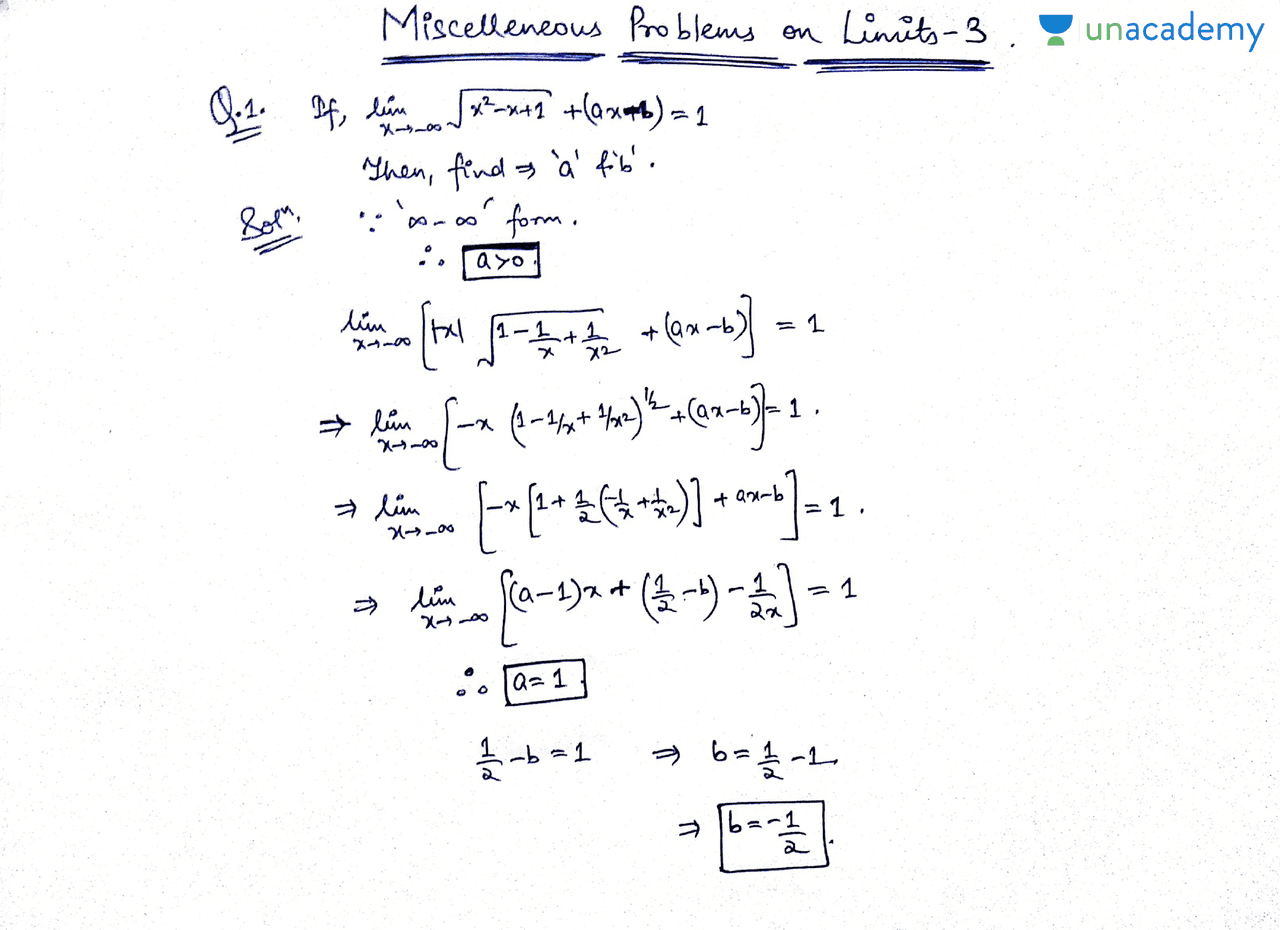 Miscelleneous Problems on Limits-3.
unacademy
Q.1. If, lim x→-∞ √(x²-x+1) + (ax-b) = 1
Then, find ⇒ 'a' & 'b'.
Solⁿ. ∵ '∞-∞' form.
∴ a>0.
lim x→-∞ [|x| √(1-1/x+1/x²) + (ax-b)] = 1
⇒ lim x→-∞ [-x (1-1/x+1/x²)^1/2 + (ax-b)] = 1.
⇒ lim x→-∞ [-x [1+1/2(-1/x+1/x²)] + ax-b] = 1.
⇒ lim x→-∞ [(a-1)x + (1/2-b) - 1/2x] = 1
∴ a=1.
1/2-b=1 ⇒ b=1/2-1.
⇒ b=-1/2.